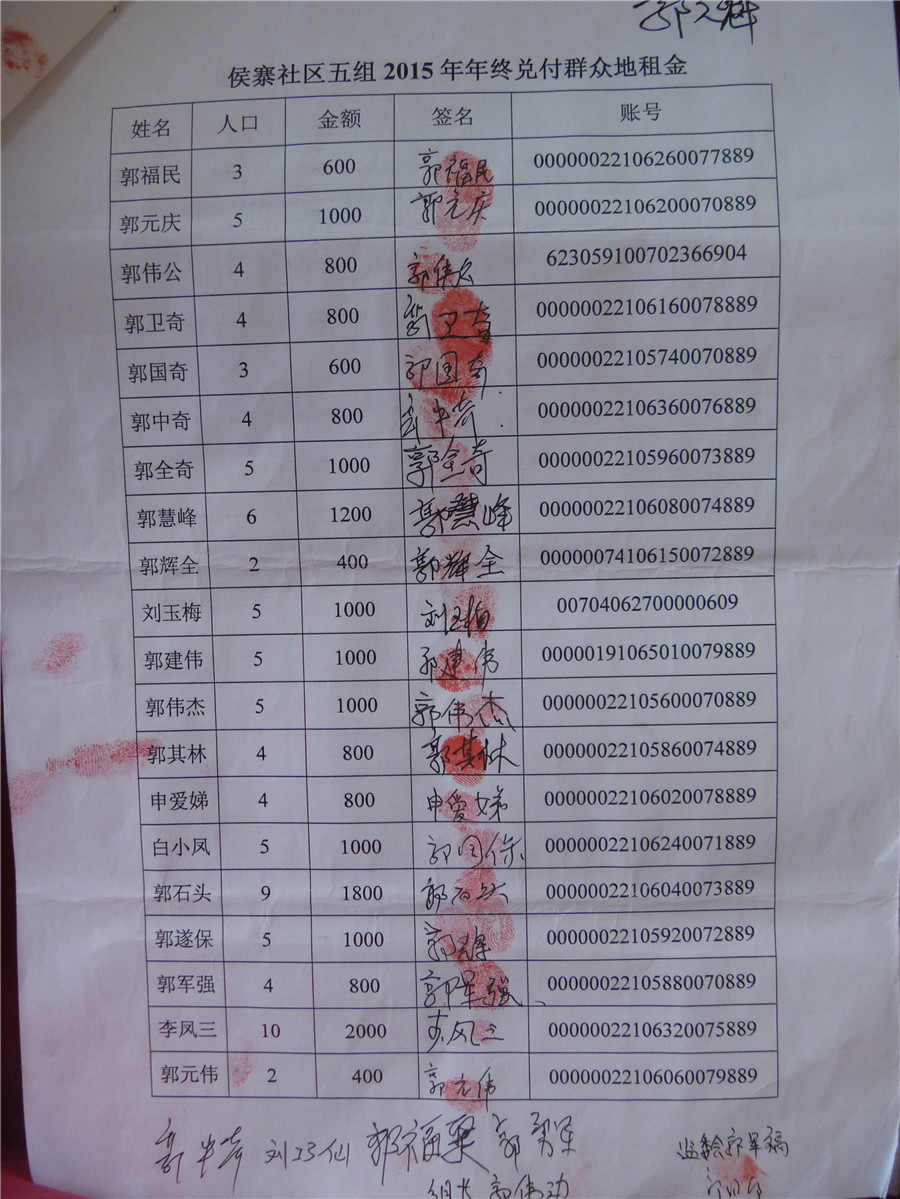 侯寨社区五组 2015 年年终兑付群众地租金
姓名 人口 金额 签名 账号
郭福民 3 600 郭福民 00000022106260077889
郭元庆 5 1000 郭元庆 00000022106200070889
郭伟公 4 800 郭伟公 623059100702366904
郭卫奇 4 800 郭卫奇 00000022106160078889
郭国奇 3 600 郭国奇 00000022105740070889
郭中奇 4 800 郭中奇 00000022106360076889
郭全奇 5 1000 郭全奇 00000022105960073889
郭慧峰 6 1200 郭慧峰 00000022106080074889
郭辉全 2 400 郭辉全 00000074106150072889
刘玉梅 5 1000 刘玉梅 00704062700000609
郭建伟 5 1000 郭建伟 00000191065010079889
郭伟杰 5 1000 郭伟杰 00000022105600070889
郭其林 4 800 郭其林 00000022105860074889
申爱娣 4 800 申爱娣 00000022106020078889
白小凤 5 1000 郭国保 00000022106240071889
郭石头 9 1800 郭石头 00000022106040073889
郭遂保 5 1000 00000022105920072889
郭军强 4 800 郭军强 00000022105880070889
李凤三 10 2000 李凤三 00000022106320075889
郭元伟 2 400 郭元伟 00000022106060079889
郭中奇 郭福 郭 监委会郭军
组长 郭伟